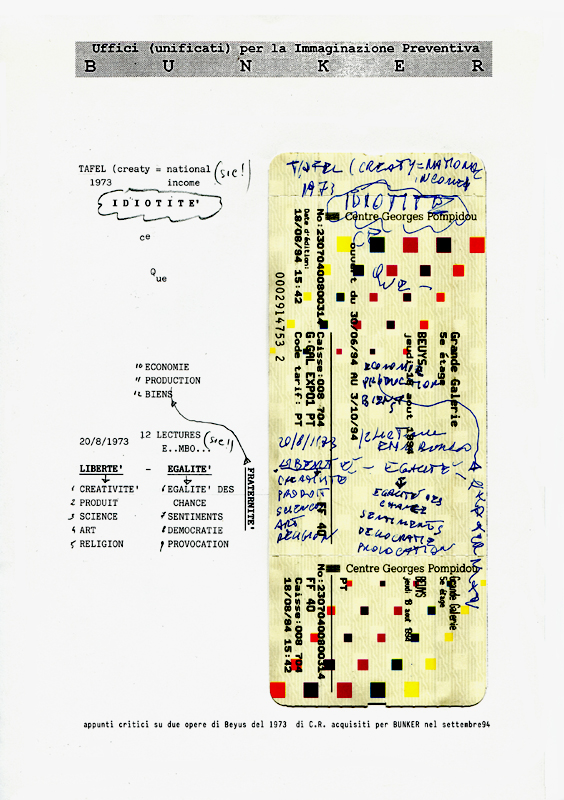 Uffici (unificati) per la Immaginazione Preventiva
B U N K E R
TAFEL (creaty = national (sic!)
1973 income
IDIOTITE'
ce
Que
10 ECONOMIE
11 PRODUCTION
12 BIENS
20/8/1973
12 LECTURES (sic!)
E..MBO...
LIBERTE' - EGALITE'
FRATERNITE'
1 CREATIVITE' 6 EGALITE' DES
2 PRODUIT CHANCE
3 SCIENCE 7 SENTIMENTS
4 ART 8 DEMOCRATIE
5 RELIGION 9 PROVOCATION
TAFEL (CREATY=NATIONAL
1973 INCOME
IDIOTITE
Centre Georges Pompidou
CE
QUE -
No:23070400800314
Date d'édition:
18/08/94 15:42
0002914753 2
Caisse:008 704
G.GAL EXPO1 PT
Code tarif: PT
FF 40
ouvert du 30/06/94 AU 3/10/94
BEUYS
jeudi 18 aout 1994
Grande Galerie
5e étage
ECONOMIE
PRODUCTION
BIENS
20/8/1973
LIBERTÉ - EGALITÉ -
CREATIVITE
PRODUIT
SCIENCE
ART
RELIGION
EGALITÉ DES
CHANCE
SENTIMENTS
DEMOCRATIE
PROVOCATION
Centre Georges Pompidou
PT
No:23070400800314
FF 40
Caisse:008 704
18/08/94 15:42
BEUYS
jeudi 18 aout 1994
Grande Galerie
5e étage
appunti critici su due opere di Beyus del 1973 di C.R. acquisiti per BUNKER nel settembre94